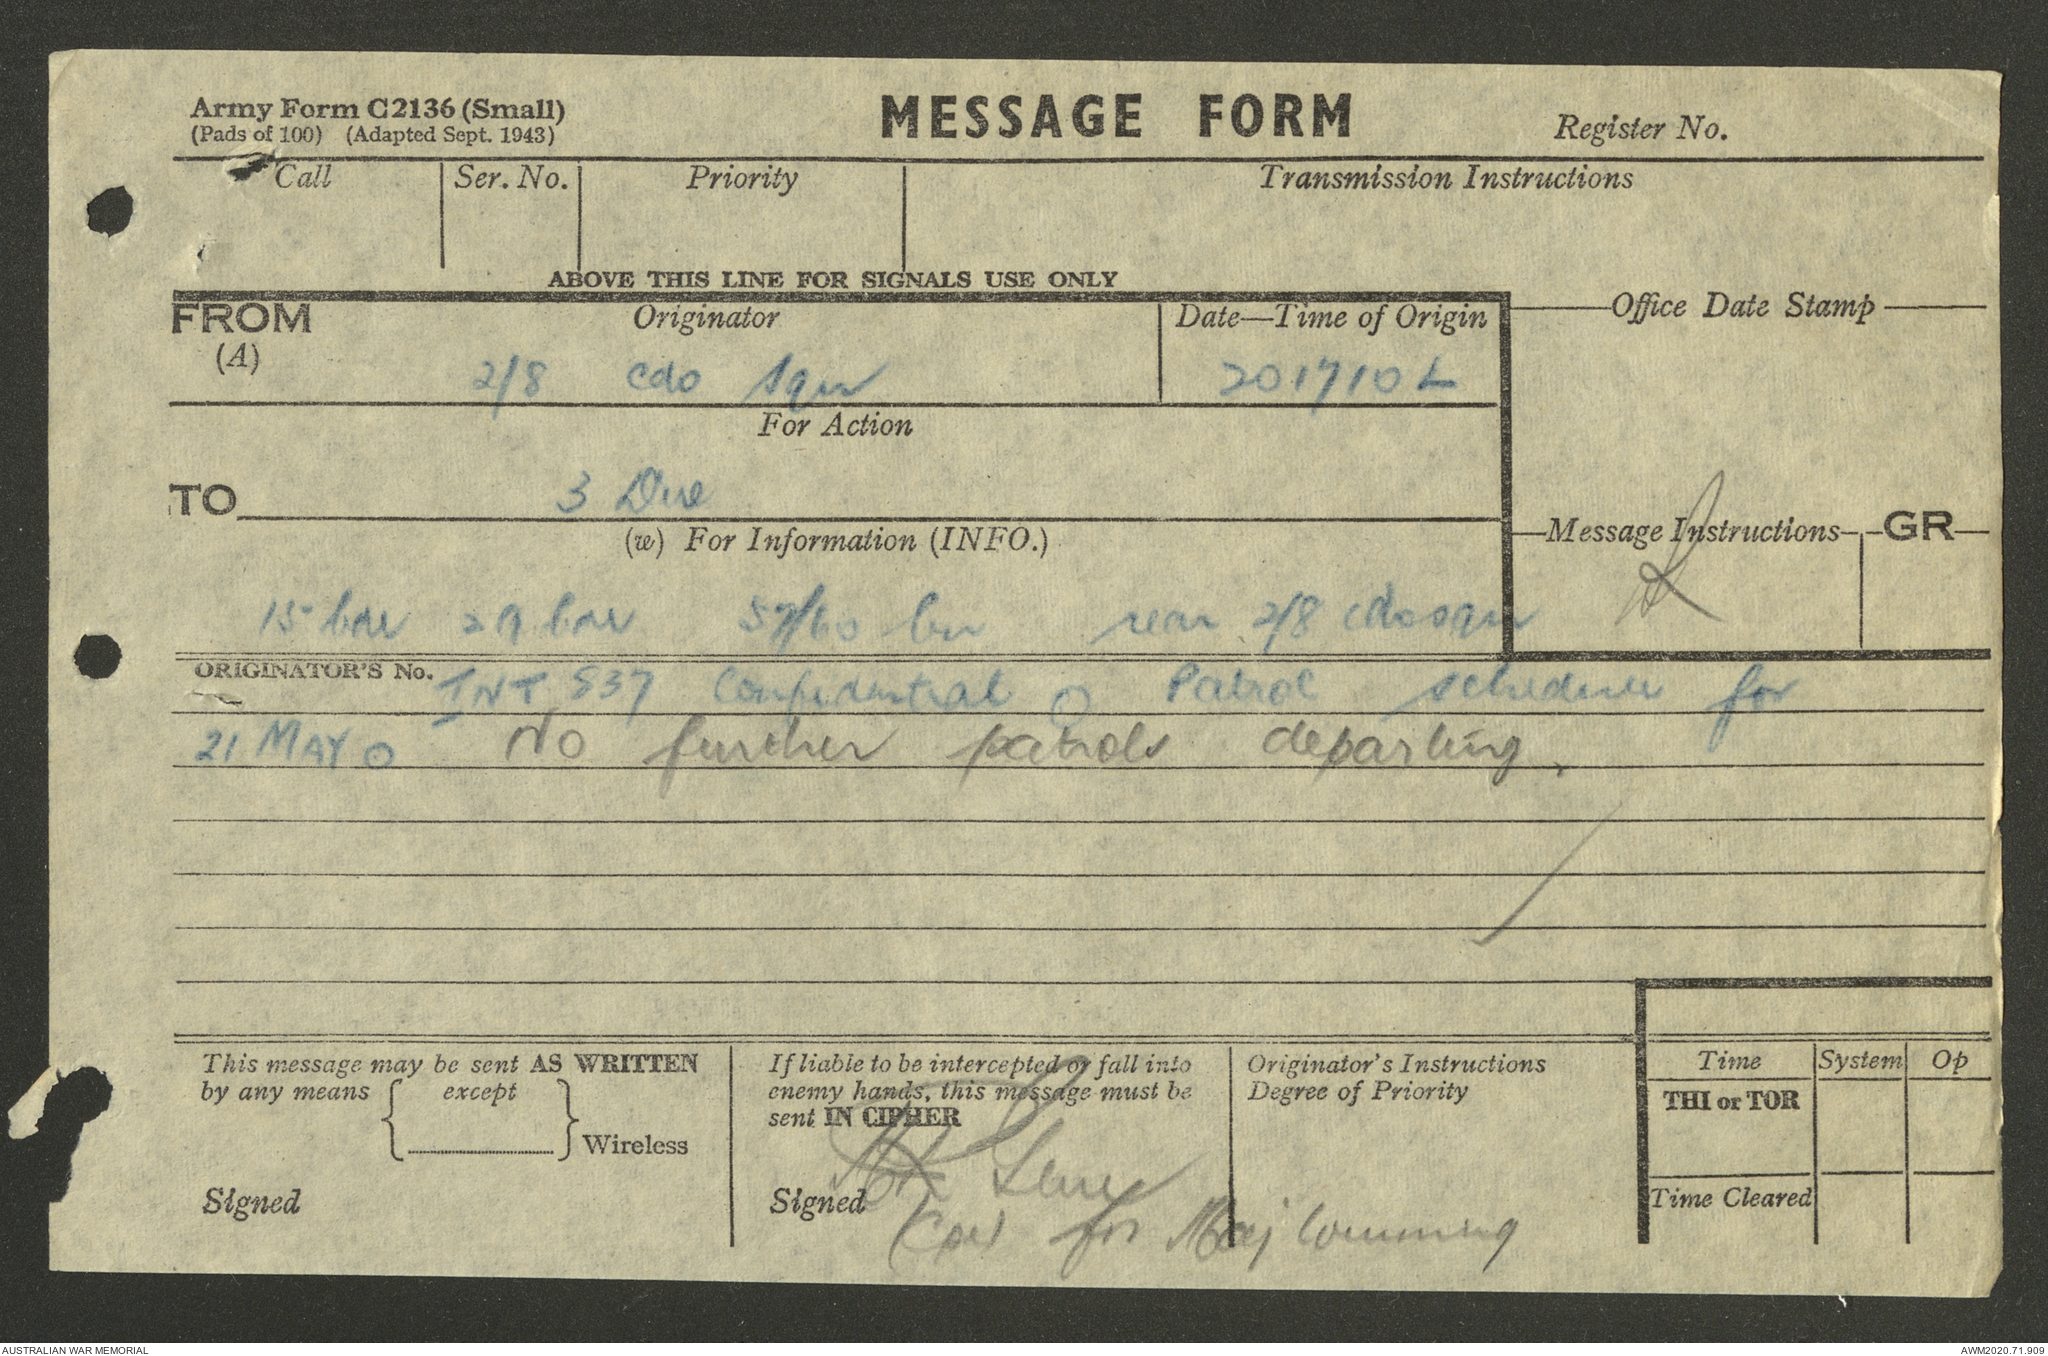 Army Form C2136 (Small)
(Pads of 100) (Adapted Sept. 1943)
MESSAGE FORM
Register No.
Call Ser. No. Priority Transmission Instructions
ABOVE THIS LINE FOR SIGNALS USE ONLY
FROM Originator Date—Time of Origin Office Date Stamp
(A)
2/8 Cdo Sqn 201710 L
For Action
TO 3 Div
(w) For Information (INFO.) Message Instructions GR
15 bde 29 bde 57/60 bn rear 2/8 cdo sqn
ORIGINATOR'S No. INT 537 Confidential O Patrol schedule for
21 MAY O No further patrols departing.
This message may be sent AS WRITTEN
by any means { except
} Wireless
Signed
If liable to be intercepted or fall into
enemy hands, this message must be
sent IN CIPHER
Signed
Capt for Maj Cumming
Originator's Instructions
Degree of Priority
Time System Op
THI or TOR
Time Cleared
AUSTRALIAN WAR MEMORIAL AWM2020.71.909